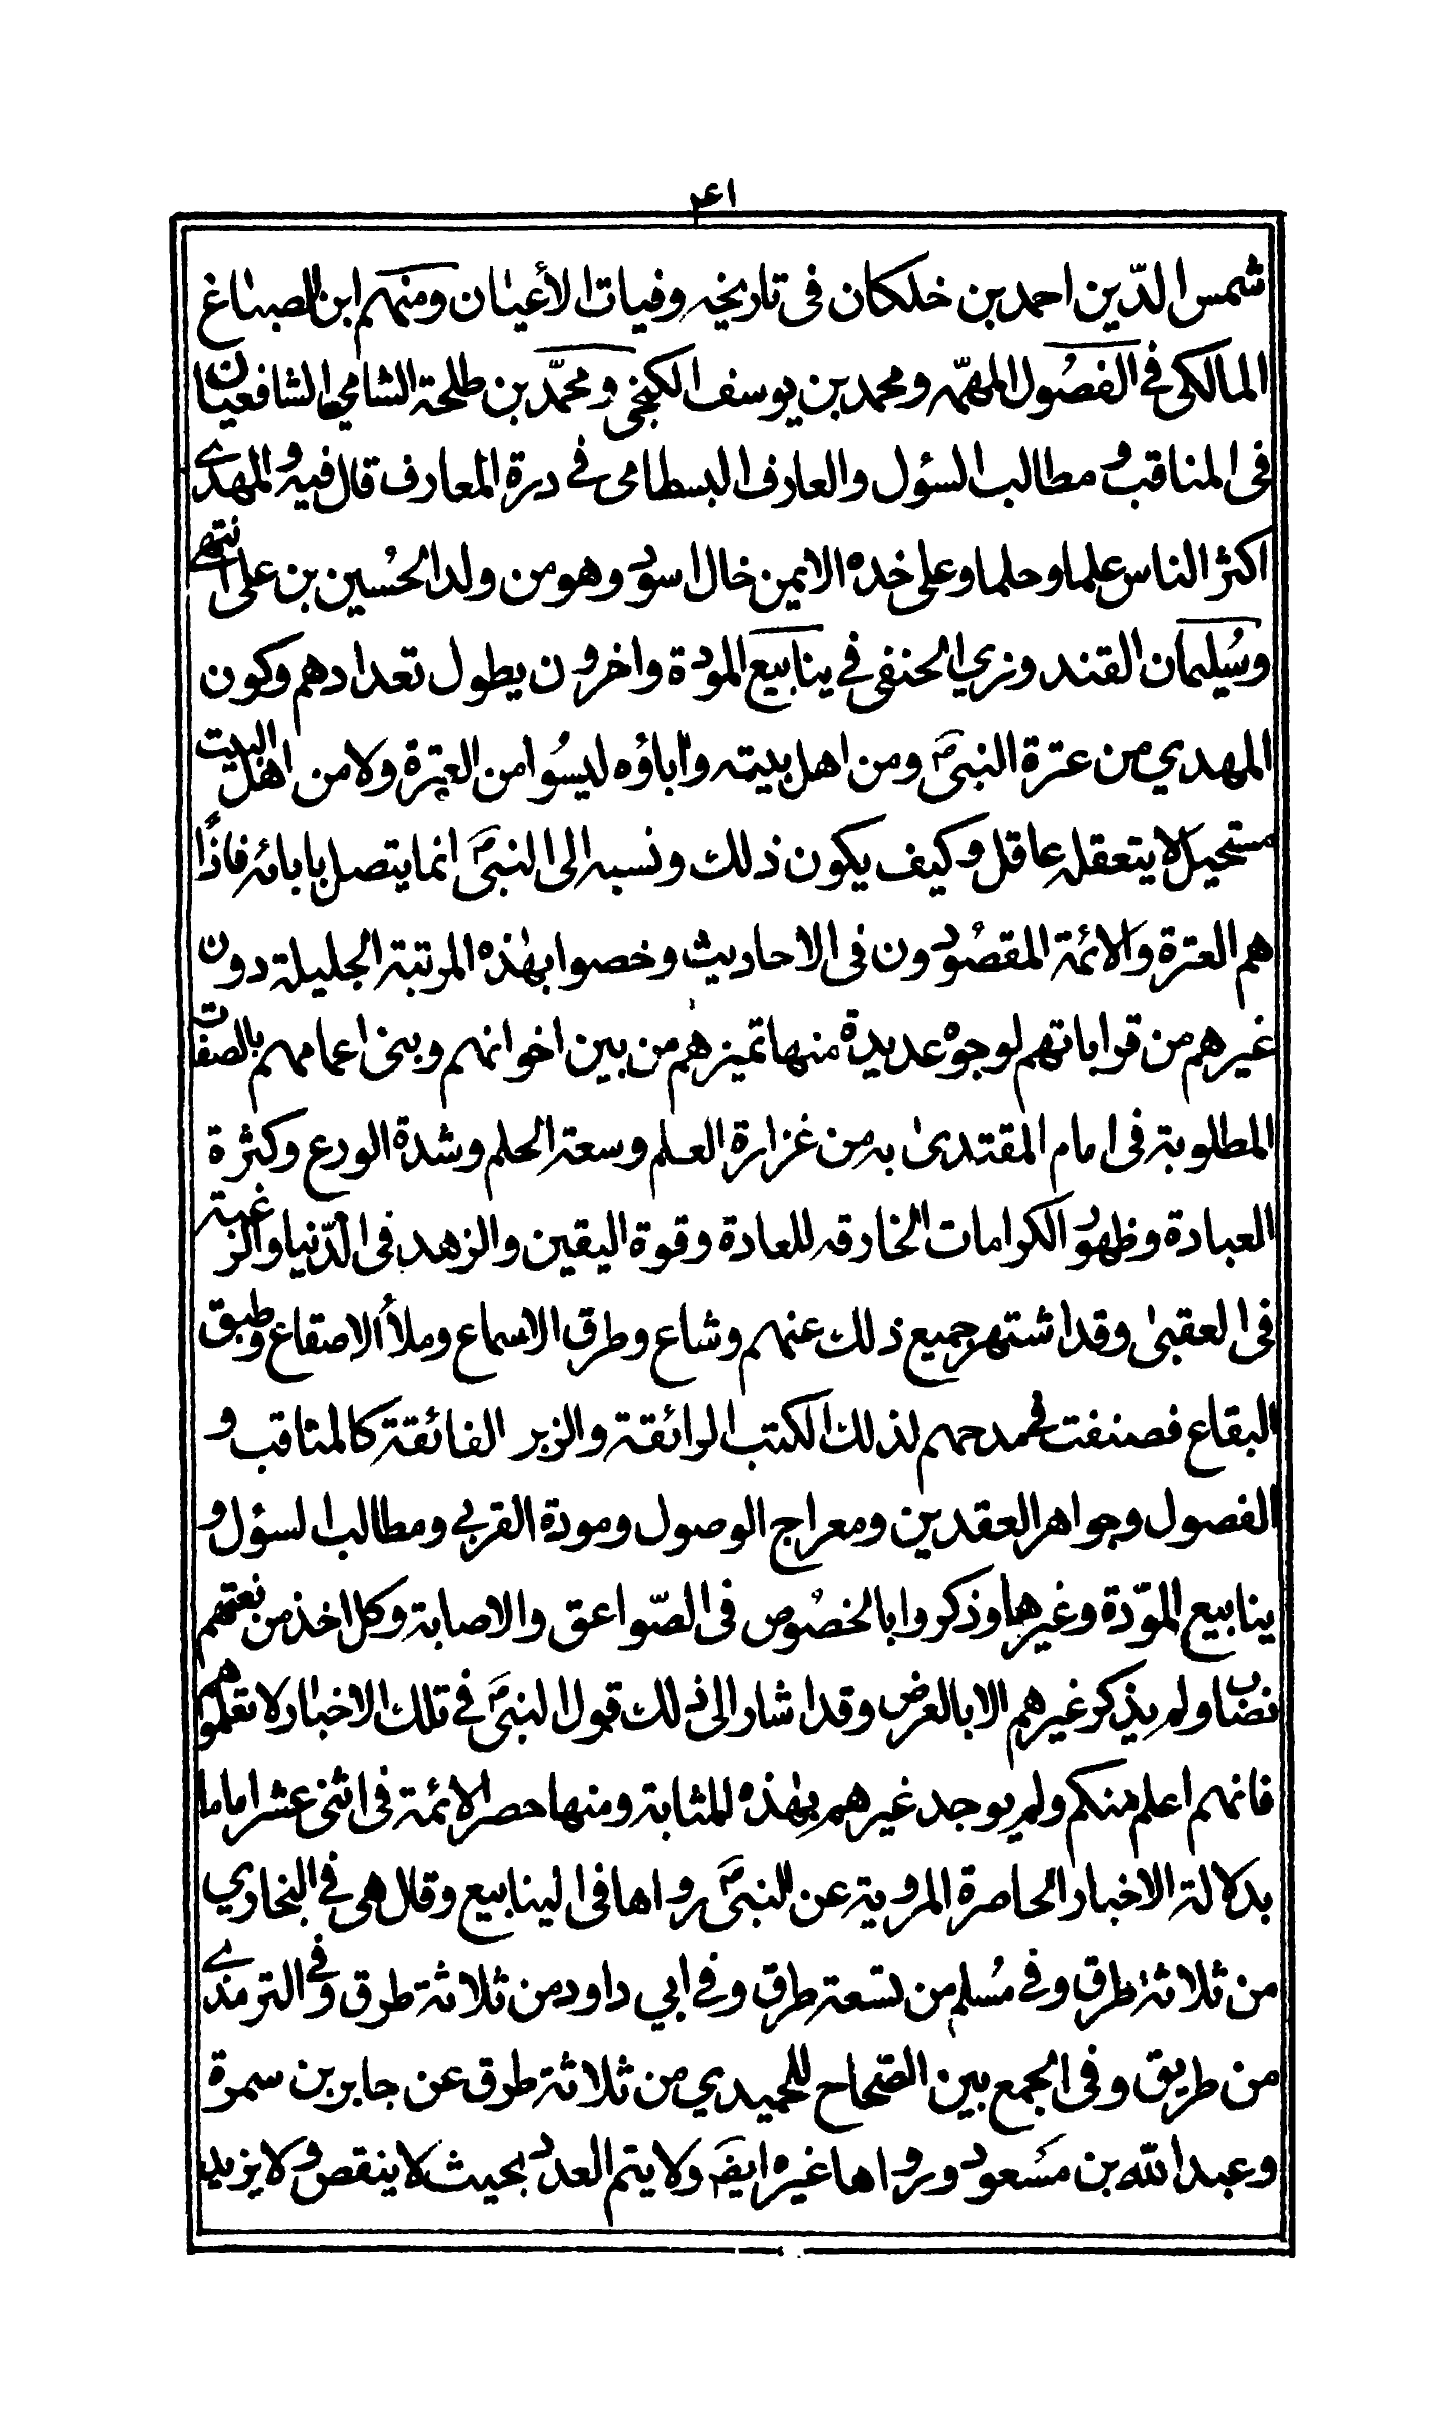 ٢٤١
شمس الدّين احمد بن خلكان فى تاريخه وفيات الأعيان ومنهم ابن الصباغ
المالكى فى الفصول المهمّه ومحمد بن يوسف الكنجى ومحمّد بن طلحة الشامى الشافعيان
فى المناقب و مطالب السؤل والعارف البسطامى فى درة المعارف قال فيه والمهدى
اكثر الناس علما وحلما وعلى خده الايمن خال اسود وهو من ولد الحُسين بن على انتهى
وسُليمان القندوزي الحنفى فى ينابيع المودة واخرون يطول تعدادهم وكون
المهدي من عترة النبىّ ومن اهل بيته واٰباؤه ليسُوا من العترة ولا من اهل البيت
مستحيل لا يتعقله عاقل وكيف يكون ذلك ونسبه الى النبىّ انما يتصل باٰبائه فاذًا
هم العترة والائمة المقصُودون فى الاحاديث وخصوا بهٰذه المرتبة الجليلة دون
غيرهم من قراباتهم لوجوه عديدة منها تميزهم من بين اخوانهم وبنى اعمامهم بالصفات
المطلوبة فى امام المقتدىٰ به من غزارة العلم وسعة الحلم وشدة الورع وكثرة
العبادة وظهور الكرامات الخارقه للعادة وقوة اليقين والزهد فى الدّنيا والرغبة
فى العقبىٰ وقد اشتهر جميع ذلك عنهم وشاع وطرق الاسماع وملأ الاصقاع وطبق
البقاع فصنفت فى مدحهم لذلك الكتب الرائقة والزبر الفائقة كالمناقب و
الفصول وجواهر العقدين ومعراج الوصول ومودة القربي ومطالب السؤل و
ينابيع المودّة وغيرها وذكروا بالخصُوص فى الصّواعق والاصابة وكل اخذ من نعتهم
نصًابا ولم يذكر غيرهم الا بالعرض وقد اشار الى ذلك قول النبىّ فى تلك الاخبار لا تعلموهم
فانهم اعلم منكم ولم يوجد غيرهم بهٰذه المثابة ومنها حصر الائمة فى اثنى عشر اماما
بدلالة الاخبار الحاصرة المروية عن النبىّ رواها فى الينابيع وقال هى فى البخاري
من ثلاثة طرق وفى مُسلم من تسعة طرق وفى ابي داود من ثلاثة طرق وفى الترمذى
من طريق وفى الجمع بين الصّحاح للحميدي من ثلاثة طرق عن جابر بن سمرة
وعبد الله بن مسعود ورواها غيره ايضً ولا يتم العدد بحيث لا ينقص ولا يزيد